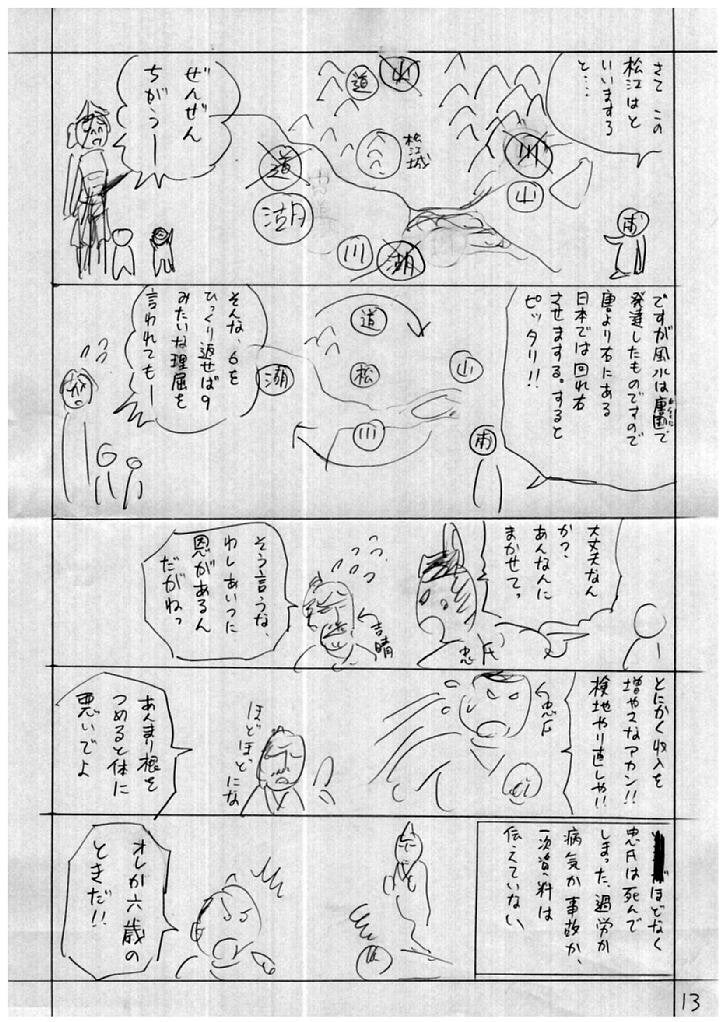 さて この
松江はと
いいまする
と…
山
道
松江城
川
山
道
湖
川
湖
甫
ぜんぜん
ちがうー
ですが風水は唐国で
発達したものですので
唐より右にある
日本では回れ右
させまする。すると
ピッタリ!!
道
山
松
湖
川
甫
そんな、6を
ひっくり返せば9
みたいな理屈を
言われてもー
大丈夫なん
か?
あんなんに
まかせてっ
忠氏
吉晴
そう言うな、
わしあいつに
恩があるん
だがねっ
とにかく収入を
増やさなアカン!!
検地やり直しや!!
忠氏
ほどほどにな
あんまり根を
つめると体に
悪いでよ
ほどなく
忠氏は死んで
しまった、過労か
病気か事故か、
一次資料は
伝えていない、
オレが六歳の
ときだ!!
13